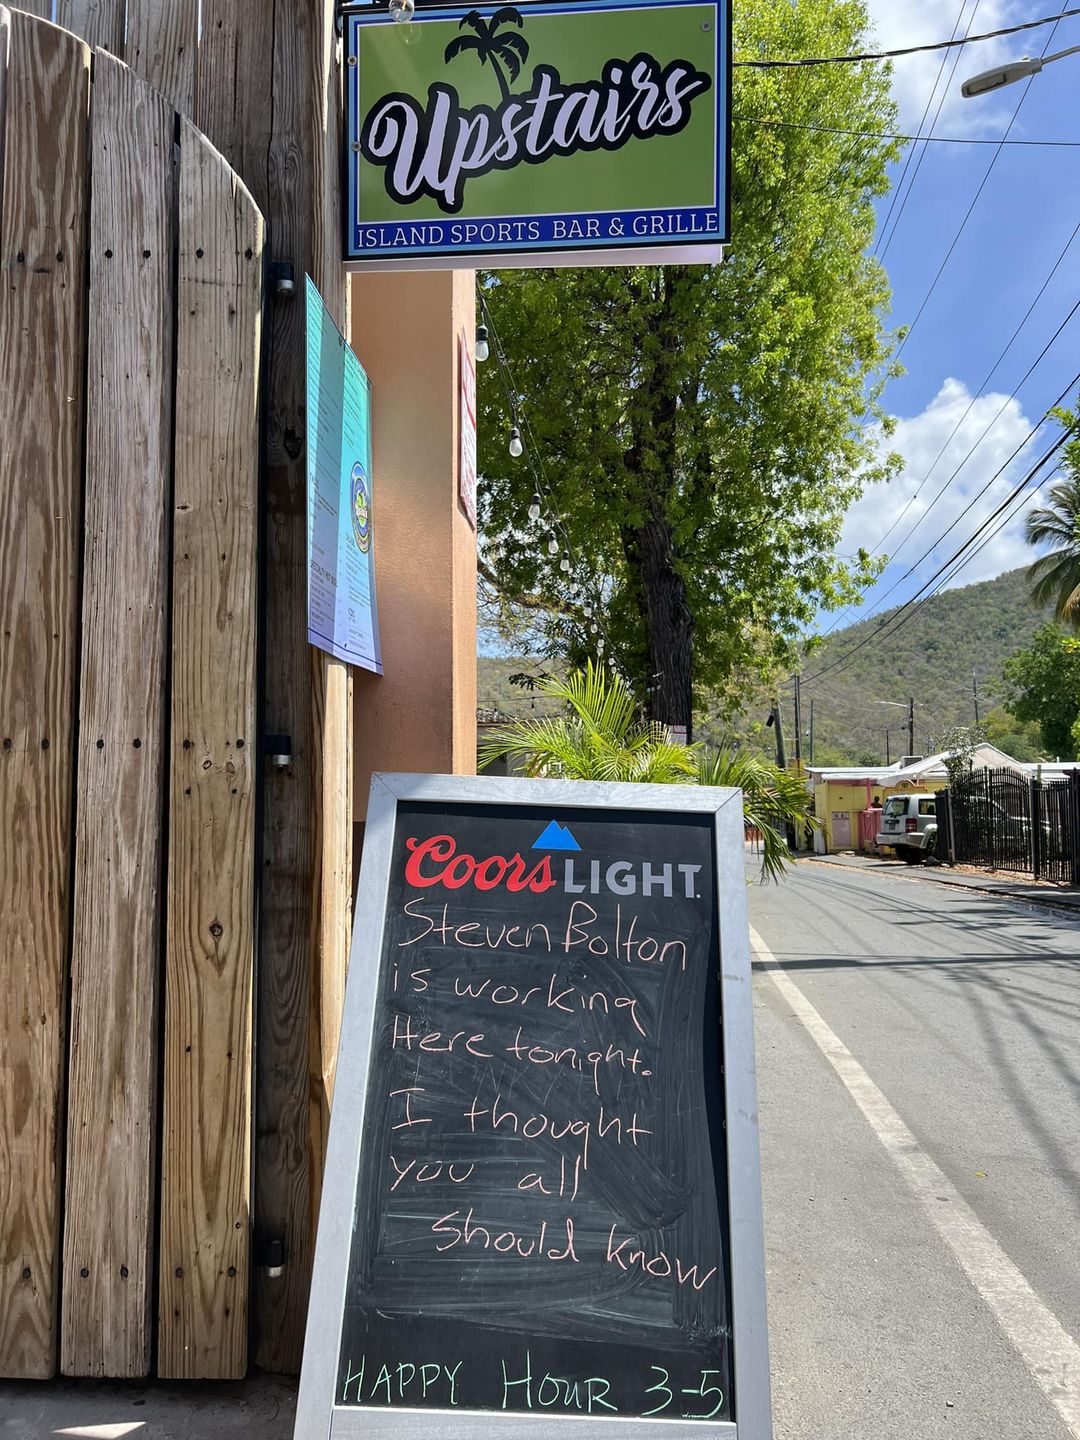 Upstairs
ISLAND SPORTS BAR & GRILLE
Coors LIGHT.
Steven Bolton
is working
Here tonight.
I thought
you all
should know
HAPPY HOUR 3-5